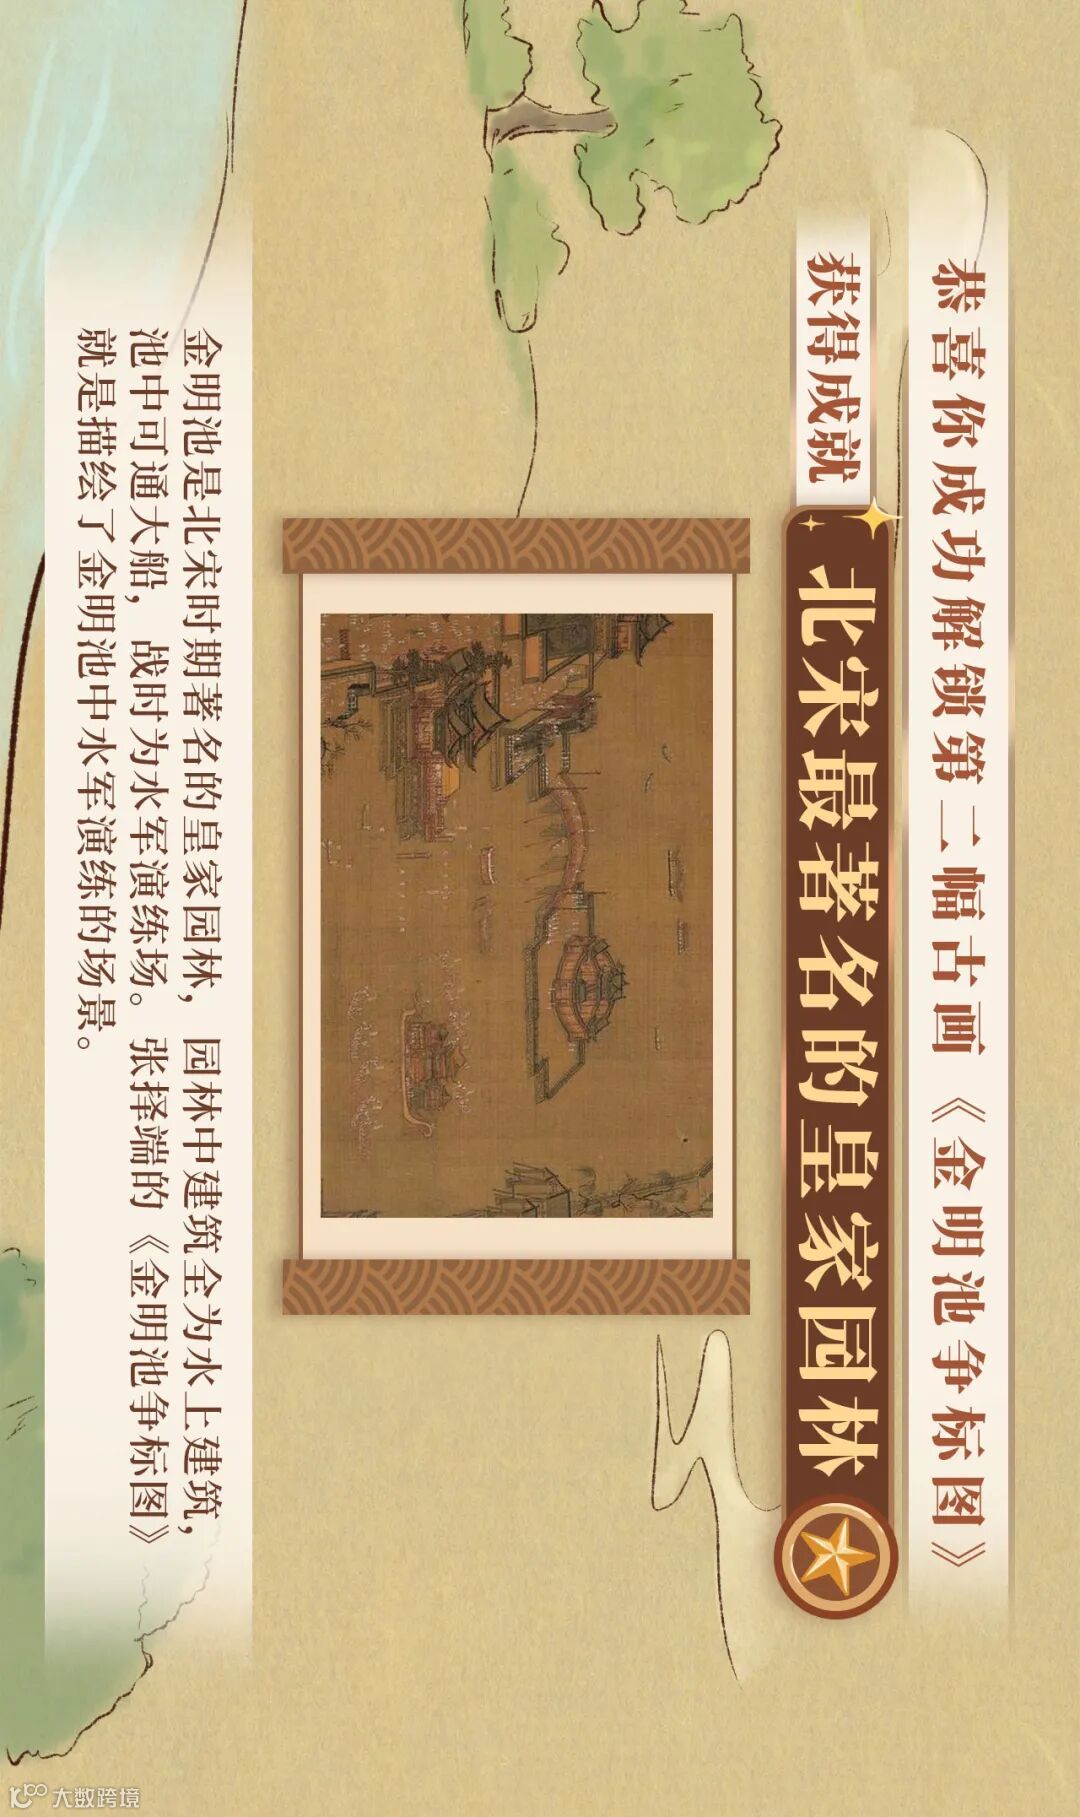 恭喜你成功解锁第二幅古画《金明池争标图》
获得成就
北宋最著名的皇家园林
金明池是北宋时期著名的皇家园林，园林中建筑全为水上建筑，
池中可通大船，战时为水军演练场。张择端的《金明池争标图》
就是描绘了金明池中水军演练的场景。
大数跨境